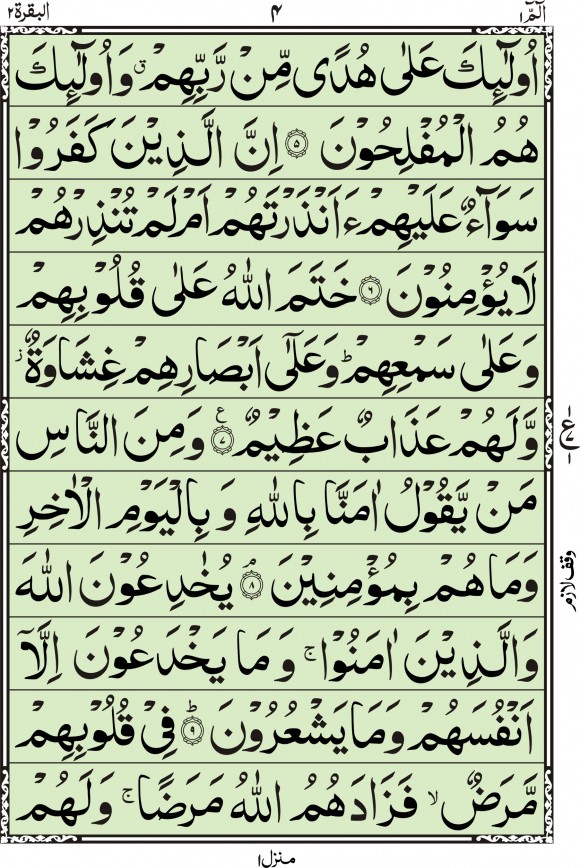 الٓمّٓ ١ ۴ البقرة ٢
اُولٰٓئِكَ عَلٰى هُدًى مِّنْ رَّبِّهِمْ ۗ وَاُولٰٓئِكَ
هُمُ الْمُفْلِحُوْنَ ۝۵ اِنَّ الَّذِيْنَ كَفَرُوْا
سَوَآءٌ عَلَيْهِمْ ءَاَنْذَرْتَهُمْ اَمْ لَمْ تُنْذِرْهُمْ
لَا يُؤْمِنُوْنَ ۝۶ خَتَمَ اللّٰهُ عَلٰى قُلُوْبِهِمْ
وَعَلٰى سَمْعِهِمْ ؕ وَعَلٰٓى اَبْصَارِهِمْ غِشَاوَةٌ ز
وَّلَهُمْ عَذَابٌ عَظِيْمٌ ۝۷ ع وَمِنَ النَّاسِ
مَنْ يَّقُوْلُ اٰمَنَّا بِاللّٰهِ وَبِالْيَوْمِ الْاٰخِرِ
وَمَا هُمْ بِمُؤْمِنِيْنَ ۝۸ۘ يُخٰدِعُوْنَ اللّٰهَ
وَالَّذِيْنَ اٰمَنُوْا ۚ وَمَا يَخْدَعُوْنَ اِلَّاۤ
اَنْفُسَهُمْ وَمَا يَشْعُرُوْنَ ۝۹ؕ فِيْ قُلُوْبِهِمْ
مَّرَضٌ ۙ فَزَادَهُمُ اللّٰهُ مَرَضًا ۚ وَلَهُمْ
وقف لازم
منزل ١